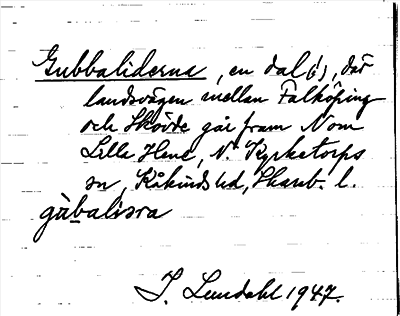 Gubbaliderna, en dal(i), där
landsvägen mellan Falköping
och Skövde går fram N om
Lilla Hene, N. Kyrketorps
sn, Kåkinds hd, Skarab. l.
gubalisra
I. Lundahl 1947.